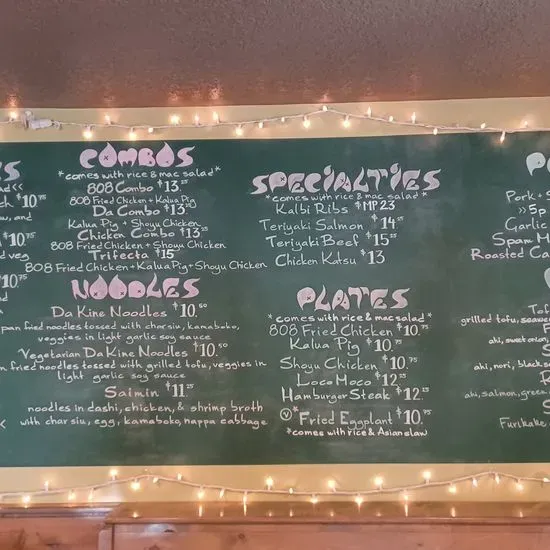 COMBOS
*comes with rice & mac salad*
808 Combo $13.25
808 Fried Chicken + Kalua Pig
Da Combo $13.50
Kalua Pig + Shoyu Chicken
Chicken Combo $13.25
808 Fried Chicken + Shoyu Chicken
Trifecta $15
808 Fried Chicken + Kalua Pig + Shoyu Chicken
NOODLES
Da Kine Noodles $10.50
pan fried noodles tossed with char siu, kamaboko,
veggies in light garlic soy sauce
Vegetarian Da Kine Noodles $10.50
fried noodles tossed with grilled tofu, veggies in
light garlic soy sauce
Saimin $11.25
noodles in dashi, chicken, & shrimp broth
with char siu, egg, kamaboko, nappa cabbage
SPECIALTIES
*comes with rice & mac salad*
Kalbi Ribs $MP 23
Teriyaki Salmon $14
Teriyaki Beef $15
Chicken Katsu $13
PLATES
*comes with rice & mac salad*
808 Fried Chicken $10.75
Kalua Pig $10.75
Shoyu Chicken $10.75
Loco Moco $12.25
Hamburger Steak $12.25
V * Fried Eggplant $10.75
*comes with rice & Asian slaw
$10.75
and
$10
veg
$10.75
Pork +
Garlic
Spam M
Roasted Ca
Tof
grilled tofu, seawe
ahi, sweet onion,
ahi, nori, black s
ahi, salmon, green
Furikake